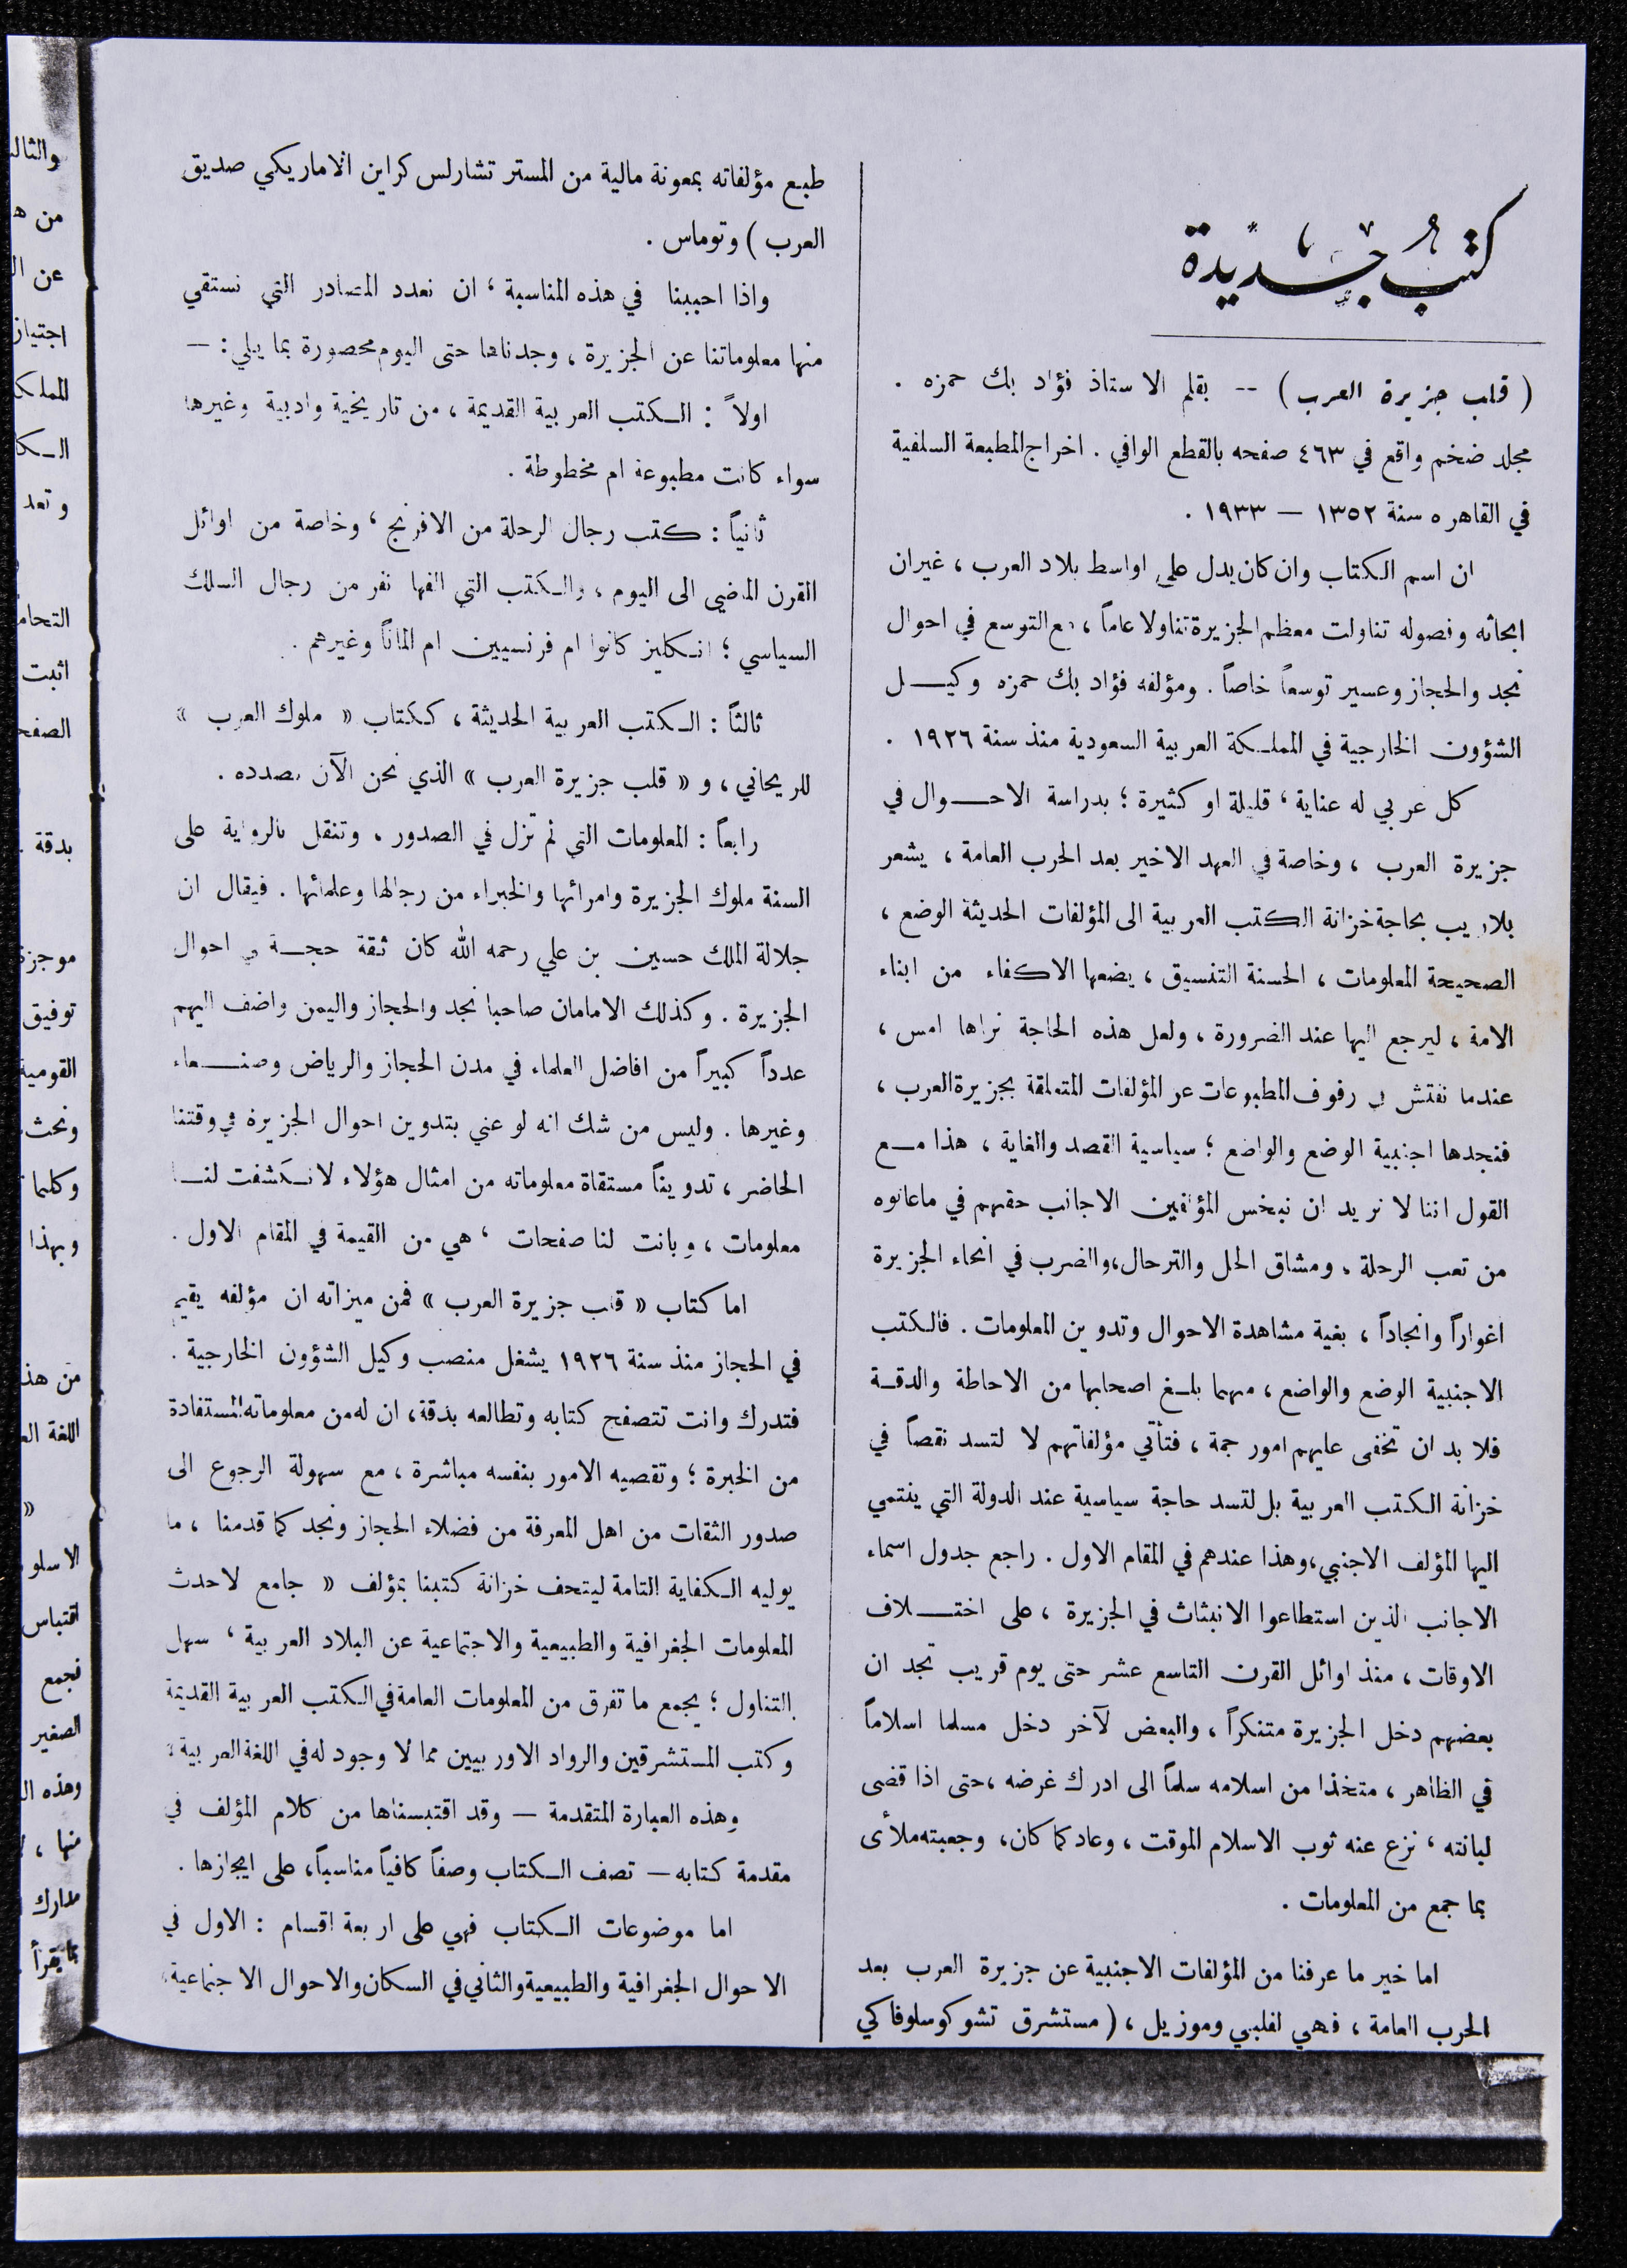 كتب جديدة
( قلب جزيرة العرب ) -- بقلم الاستاذ فؤاد بك حمزه .
مجلد ضخم واقع في ٤٦٣ صفحه بالقطع الوافي . اخراج المطبعة السلفية
في القاهره سنة ١٣٥٢ — ١٩٣٣ .
ان اسم الكتاب وان كان يدل على اواسط بلاد العرب ، غير ان
ابحاثه وفصوله تناولت معظم الجزيرة تناولا عاماً ، مع التوسع في احوال
نجد والحجاز وعسير توسعاً خاصاً . ومؤلفه فؤاد بك حمزه وكيـــل
الشؤون الخارجية في المملكة العربية السعودية منذ سنة ١٩٢٦ .
كل عربي له عناية ، قليلة او كثيرة ؛ بدراسة الاحـــوال في
جزيرة العرب ، وخاصة في العهد الاخير بعد الحرب العامة ، يشعر
بلاريب بحاجة خزانة الكتب العربية الى المؤلفات الحديثة الوضع ،
الصحيحة المعلومات ، الحسنة التنسيق ، يضعها الاكفاء من ابناء
الامة ، ليرجع اليها عند الضرورة ، ولعل هذه الحاجة نراها امس ،
عندما نفتش في رفوف المطبوعات عن المؤلفات المتعلقة بجزيرة العرب ،
فنجدها اجنبية الوضع والواضع ؛ سياسية القصد والغاية ، هذا مـــع
القول اننا لا نريد ان نبخس المؤلفين الاجانب حقهم في ماعانوه
من تعب الرحلة ، ومشاق الحل والترحال ، والضرب في انحاء الجزيرة
اغواراً وانجاداً ، بغية مشاهدة الاحوال وتدوين المعلومات . فالكتب
الاجنبية الوضع والواضع ، مهما بلـغ اصحابها من الاحاطة والدقـــة
فلا بد ان تخفى عليهم امور جمة ، فتأتي مؤلفاتهم لا لتسد نقصاً في
خزانة الكتب العربية بل لتسد حاجة سياسية عند الدولة التي ينتمي
اليها المؤلف الاجنبي ، وهذا عندهم في المقام الاول . راجع جدول اسماء
الاجانب الذين استطاعوا الانبثاث في الجزيرة ، على اختـــلاف
الاوقات ، منذ اوائل القرن التاسع عشر حتى يوم قريب تجد ان
بعضهم دخل الجزيرة متنكراً ، والبعض لآخر دخل مسلما اسلاماً
في الظاهر ، متخذا من اسلامه سلماً الى ادرك غرضه ، حتى اذا قضى
لبانته ، نزع عنه ثوب الاسلام الموقت ، وعاد كما كان ، وجعبته ملأى
بما جمع من المعلومات .
اما خير ما عرفنا من المؤلفات الاجنبية عن جزيرة العرب بعد
الحرب العامة ، فهي لفلبي وموزيل ، ( مستشرق تشوكوسلوفاكي
طبع مؤلفاته بمعونة مالية من المستر تشارلس كراين الاماريكي صديق
العرب ) وتوماس .
واذا احببنا في هذه المناسبة ، ان نعدد المصادر التي نستقي
منها معلوماتنا عن الجزيرة ، وجدناها حتى اليوم محصورة بما يلي : —
اولاً : الكتب العربية القديمة ، من تاريخية وادبية وغيرها
سواء كانت مطبوعة ام مخطوطة .
ثانياً : كتب رجال الرحلة من الافرنج ، وخاصة من اوائل
القرن الماضي الى اليوم ، والكتب التي الفها نفر من رجال السلك
السياسي ؛ انكليز كانوا ام فرنسيين ام الماناً وغيرهم .
ثالثاً : الكتب العربية الحديثة ، ككتاب « ملوك العرب »
للريحاني ، و « قلب جزيرة العرب » الذي نحن الآن بصدده .
رابعاً : المعلومات التي لم تزل في الصدور ، وتنقل بالرواية على
السنة ملوك الجزيرة وامرائها والخبراء من رجالها وعلمائها . فيقال ان
جلالة الملك حسين بن علي رحمه الله كان ثقة حجـــة في احوال
الجزيرة . وكذلك الامامان صاحبا نجد والحجاز واليمن واضف اليهم
عدداً كبيراً من افاضل العلماء في مدن الحجاز والرياض وصنـــعاء
وغيرها . وليس من شك انه لو عني بتدوين احوال الجزيرة في وقتنا
الحاضر ، تدويناً مستقاة معلوماته من امثال هؤلاء لانكشفت لنـــا
معلومات ، وبانت لنا صفحات ، هي من القيمة في المقام الاول .
اما كتاب « قلب جزيرة العرب » فمن ميزاته ان مؤلفه يقيم
في الحجاز منذ سنة ١٩٢٦ يشغل منصب وكيل الشؤون الخارجية .
فتدرك وانت تتصفح كتابه وتطالعه بدقة ، ان له من معلوماته المستفادة
من الخبرة ؛ وتقصيه الامور بنفسه مباشرة ، مع سهولة الرجوع الى
صدور الثقات من اهل المعرفة من فضلاء الحجاز ونجد كما قدمنا ، ما
يوليه الكفاية التامة ليتحف خزانة كتبنا بمؤلف « جامع لاحدث
المعلومات الجغرافية والطبيعية والاجتماعية عن البلاد العربية ، سهل
التناول ؛ يجمع ما تفرق من المعلومات العامة في الكتب العربية القديمة
وكتب المستشرقين والرواد الاوربيين مما لا وجود له في اللغة العربية »
وهذه العبارة المتقدمة — وقد اقتبسناها من كلام المؤلف في
مقدمة كتابه — تصف الكتاب وصفاً كافياً مناسباً ، على ايجازها .
اما موضوعات الكتاب فهي على اربعة اقسام : الاول في
الاحوال الجغرافية والطبيعية والثاني في السكان والاحوال الاجتماعية ،
من ه
اجتياز
وتعد
اثبت
بدقة .
توفيق
وكلما
وبهذا
من هذ
اقتباس
فجمع
الصغير
منها ،
مدارك